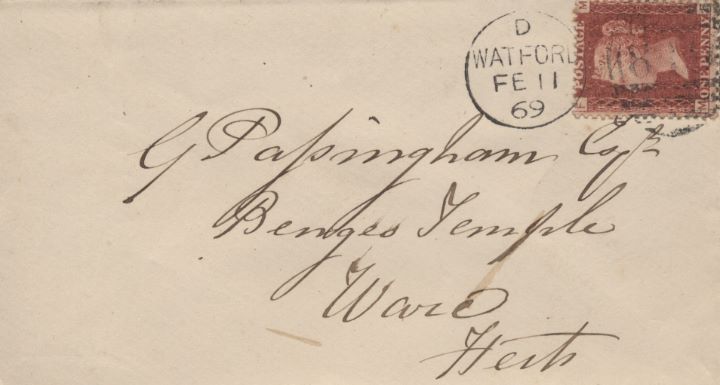 D
WATFORD
FE 11
69
POSTAGE
ONE PENNY
M
L
L
M
G Paſsingham Esqr
Benges Temple
Ware
Herts